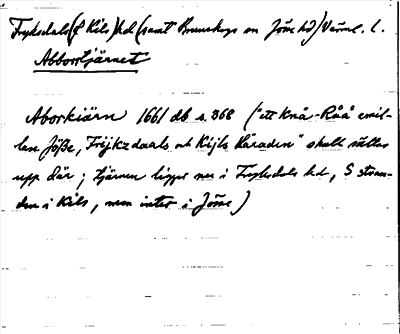 Fryksdals (& Kils) hd (samt Brunskogs sn Jösse hd) Värml. l.
Abborrtjärnet
Aborkiärn 1661 db s. 368 ("ett Knä-Råå emil-
lan Jösse, Frijkzdaals och Kijls Häraden" skall sättas
upp där; tjärnen ligger nu i Fryksdals hd, S stran-
den i Kils, men inte i Jösse)